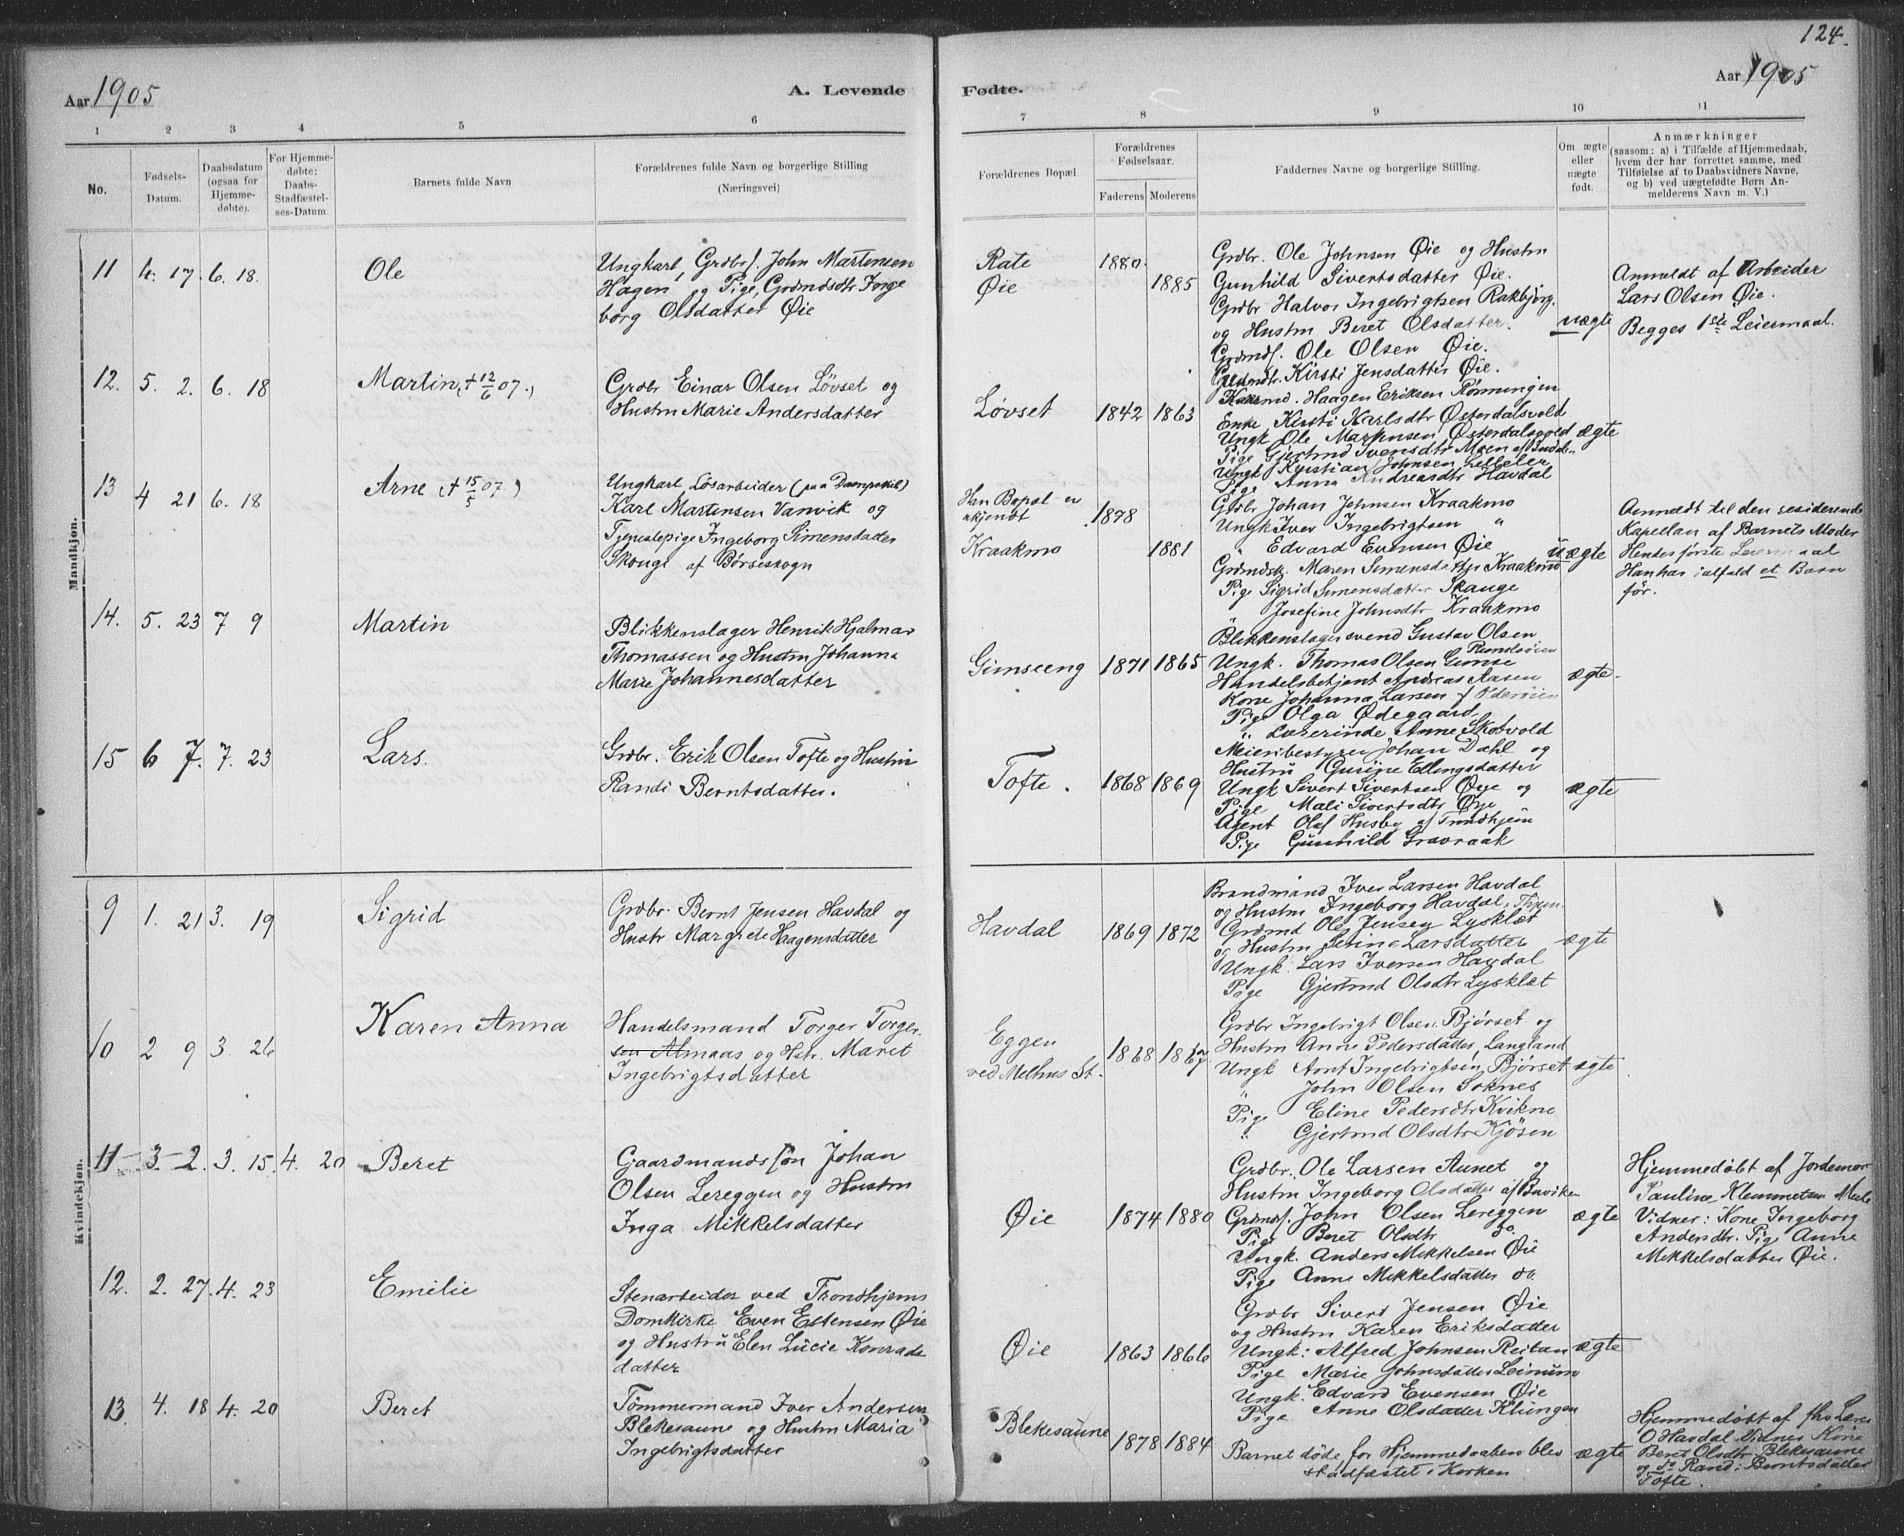 124.
Aar 1905
A. Levende
Fødte.
Aar 1905
1 2 3 4 5 6 7 8 9 10 11
No.
Fødsels-
Datum.
Daabsdatum
(ogsaa for
Hjemme-
døbte).
For Hjemme-
døbte:
Daabs-
Stadfæstel-
ses-Datum.
Barnets fulde Navn.
Forældrenes fulde Navn og borgerlige Stilling
(Næringsvei)
Forældrenes Bopæl.
Forældrenes
Fødselsaar.
Faderens Moderens
Faddernes Navne og borgerlige Stilling.
Om ægte
eller
uægte
født.
Anmærkninger
(saasom: a) i Tilfælde af Hjemmedaab,
hvem der har forrettet samme, med
Tilføielse af to Daabsvidners Navne,
og b) ved uægtefødte Børn An-
melderens Navn m. V.)
Mandkjøn.
11 4. 17. 6. 18. Ole
Ungkarl, Grdbrs. John Martensen
Hagen og Pige, Grdmdsdtr Inge
borg Olsdatter Øie
Rate
Øie
1880.
1885
Grdbr. Ole Johnsen Øie og Hustru
Gunhild Sivertsdatter Øie.
Grdbr Halvor Ingebrigtsen Rakbjørg.
og Hustru Beret Olsdatter.
Grdmds. Ole Olsen Øie.
Grdmdtr. Kirsti Jensdatter Øie.
uægte
Anmeldt af Arbeider
Lars Olsen Øie.
Begges 1ste Leiermaal.
12. 5. 2. 6. 18 Martin (+ 12/6 07.)
Grdbr Einar Olsen Løvset og
Hustru Marie Andersdatter
Løvset
1842 1863
Haagen Eriksen Rønningen
Enke Kirsti Karlsdtr Østerdalsvold
Ungk. Ole Martinsen Østerdalsvold
Pige Gjertrud Ivensdtr Moen
Ungk Kristian Johnsen
Pige Anna Andreasdtr Havdal
ægte
13 4 21 6. 18 Arne (+ 15/5 07.)
Ungkarl Løsarbeider (paa Dampskib)
Karl Martensen Vanvik og
Tjenestepige Ingeborg Simensdatter
Skauge af Børseskogn
Han Bopæl er
ukjendt
Kraakmo
1878
1881
Grdbr Johan Johnsen Kraakmo
Ungk Iver Ingebrigtsen "
" Edvard Evensen Øie
Maren Simensdtr Kraakmo
Pig Sigrid Simensdatter Skauge
" Josefine Johnsdtr Kraakmo
uægte
Anmeldt til den residerende
Kapellan af Barnets Moder
Hendes første Leiermaal
Han har ialfald et Barn
før.
14. 5. 23 7 9 Martin
Blikkenslager Henrik Hjalmar
Thomassen og Hustru Johanna
Marie Johannesdatter
Gimseeng
1871 1865
Blikkenslagersvend Gustav Olsen
Ungk. Thomas Olsen Gimse
Handelsbetjent Andreas Aasen
Kone Johanna Larsen
Pige Olga Ødegaard
" Lærerinde Anne Skotvold
ægte.
15 6 7. 7. 23 Lars.
Grdbr. Erik Olsen Tofte og Hustru
Randi Berntsdatter.
Tofte.
1868 1869
Meieribestyrer Johan Dahl og
Hustru Gurine Ellingsdatter
Ungk Sivert Sivertsen Øye og
Pige Mali Sivertsdtr Øye
Agent Oluf Husby af Trondhjem
Pige Gunhild Gravraak
ægte
Kvindekjøn.
9 1. 21 3. 19 Sigrid
Grdbr. Bernt Jensen Havdal og
Hustr Margrete Haagensdatter
Havdal
1869 1872
Brandmand Iver Larsen Havdal
og Hustru Ingeborg Havdal,
Grdmd Ole Jensen Lysklæt
og Hustru Serine Larsdatter
Ungk. Lars Iversen Havdal
Pige Gjertrud Olsdtr Lysklæt
ægte
10 2 9 3. 26 Karen Anna
Handelsmand Torger Torger-
sen Almaas og Hstr. Maret
Ingebrigtsdatter
Eggen
ved Melhus St.
1868
Grdbr Ingebrigt Olsen Bjørset og
Hustru Anne Pedersdatter Langland
Ungk Arnt Ingebrigtsen Bjørset
" John Olsen Soknes
Pige Eline Pedersdtr Kvikne
" Gjertrud Olsdtr Kjøsen
ægte
11 3 2. 3. 15. 4. 20 Beret
Gaardmandssøn Johan
Olsen Lereggen og Hustru
Inga Mikkelsdatter
Øie
1874 1880
Grdbr. Ole Larsen Aunet og
Hustru Ingeborg Olsdatter af Buviken
Grdmds. John Olsen Lereggen
Pige Beret Olsdtr do.
Ungk. Anders Mikkelsen Øie
Pige Anne Mikkelsdatter do.
ægte
Hjemmedøbt af Jordemor
Pauline Klemmetsen Mele
Vidner: Kone Ingeborg
Andersdtr. Pig Anne
Mikkelsdatter Øie.
12. 2. 27. 4. 23 Emelie
Stenarbeider ved Trondhjems
Domkirke Even Estensen Øie
og Hustru Elen Lucie Konrads
datter
Øie
1863 1866
Grdbr Sivert Jensen Øie
og Hustru Karen Eriksdatter
Ungk: Alfred Johnsen Reitan
Pige Marie Johnsdatter Leinum
Ungk. Edvard Evensen Øie
Pige Anne Olsdatter Klungen
ægte
13 4. 18 4. 20 Beret
Tømmermand Iver Andersen
Blekesaune og Hustru Maria
Ingebrigtsdatter
Blekesaune
1878 1884
Barnet døde før Hjemmedaaben blev
stadfæstet i Kirken
ægte
Hjemmedøbt af
O Havdal Vidner Kone
Beret Olsdtr Blekesaune
og do Randi Berntsdatter
Tofte.